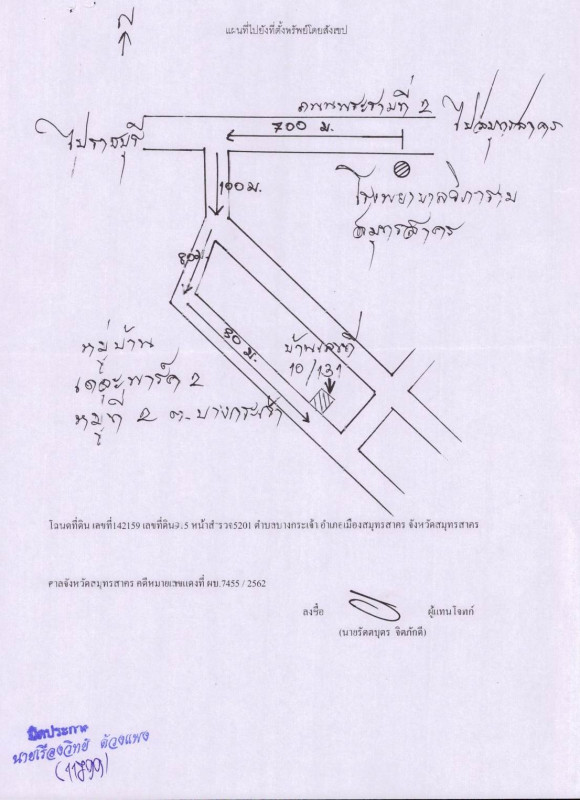 น
แผนที่ไปยังที่ตั้งทรัพย์โดยสังเขป
ถนนพระรามที่ 2
ไปสมุทรสาคร
ไปราชบุรี
700 ม.
100 ม.
โรงพยาบาลวิภาราม
สมุทรสาคร
80ม.
80 ม.
บ้านเลขที่
10/131
หมู่บ้าน
เดอะพาร์ค 2
หมู่ที่ 2 ต.บางกระเจ้า
โฉนดที่ดิน เลขที่142159 หน้าสำรวจ5201 ตำบลบางกระเจ้า อำเภอเมืองสมุทรสาคร จังหวัดสมุทรสาคร
ศาลจังหวัดสมุทรสาคร คดีหมายเลขแดงที่ ผบ.7455 / 2562
ลงชื่อ ผู้แทนโจทก์
(นายรัตตบุตร จิตภักดี)
ปิดประกาศ
นายเรืองวิทย์ ด้วงแพง